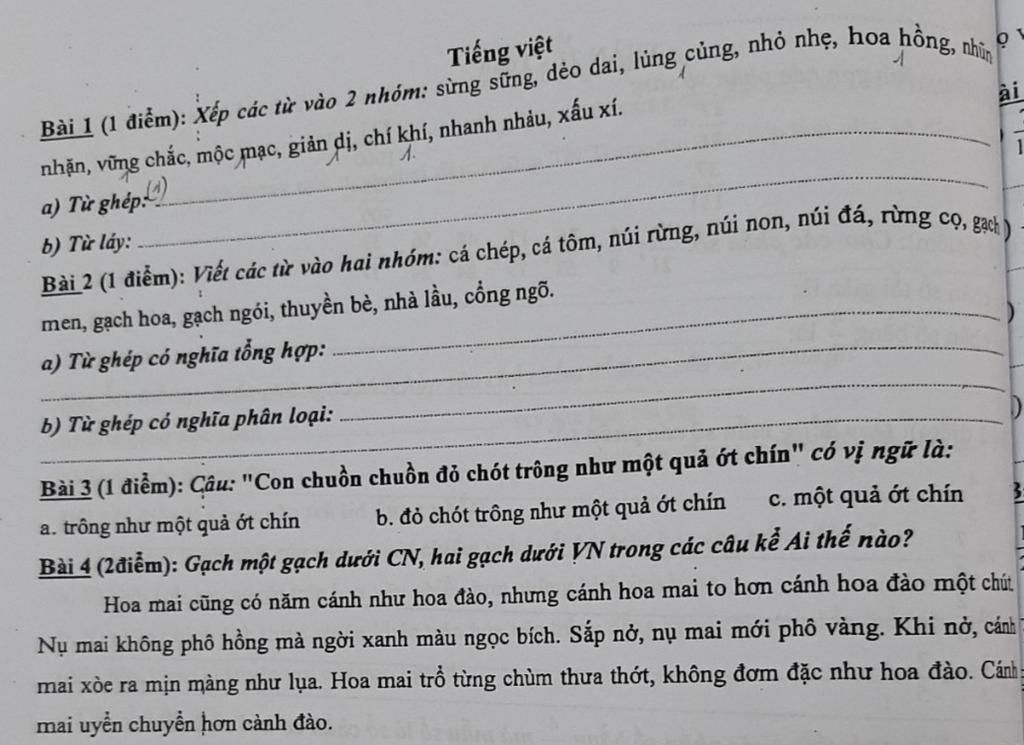 Tiếng việt
Bài 1 (1 điểm): Xếp các từ vào 2 nhóm: sừng sững, dẻo dai, lủng củng, nhỏ nhẹ, hoa hồng, nhũn
nhặn, vững chắc, mộc mạc, giản dị, chí khí, nhanh nhảu, xấu xí.
a) Từ ghép:
b) Từ láy:
Bài 2 (1 điểm): Viết các từ vào hai nhóm: cá chép, cá tôm, núi rừng, núi non, núi đá, rừng cọ, gạch
men, gạch hoa, gạch ngói, thuyền bè, nhà lầu, cổng ngõ.
a) Từ ghép có nghĩa tổng hợp:
b) Từ ghép có nghĩa phân loại:
Bài 3 (1 điểm): Câu: "Con chuồn chuồn đỏ chót trông như một quả ớt chín" có vị ngữ là:
a. trông như một quả ớt chín b. đỏ chót trông như một quả ớt chín c. một quả ớt chín
Bài 4 (2điểm): Gạch một gạch dưới CN, hai gạch dưới VN trong các câu kể Ai thế nào?
Hoa mai cũng có năm cánh như hoa đào, nhưng cánh hoa mai to hơn cánh hoa đào một chút
Nụ mai không phô hồng mà ngời xanh màu ngọc bích. Sắp nở, nụ mai mới phô vàng. Khi nở, cánh
mai xòe ra mịn màng như lụa. Hoa mai trổ từng chùm thưa thớt, không đơm đặc như hoa đào. Cánh
mai uyển chuyển hơn cành đào.